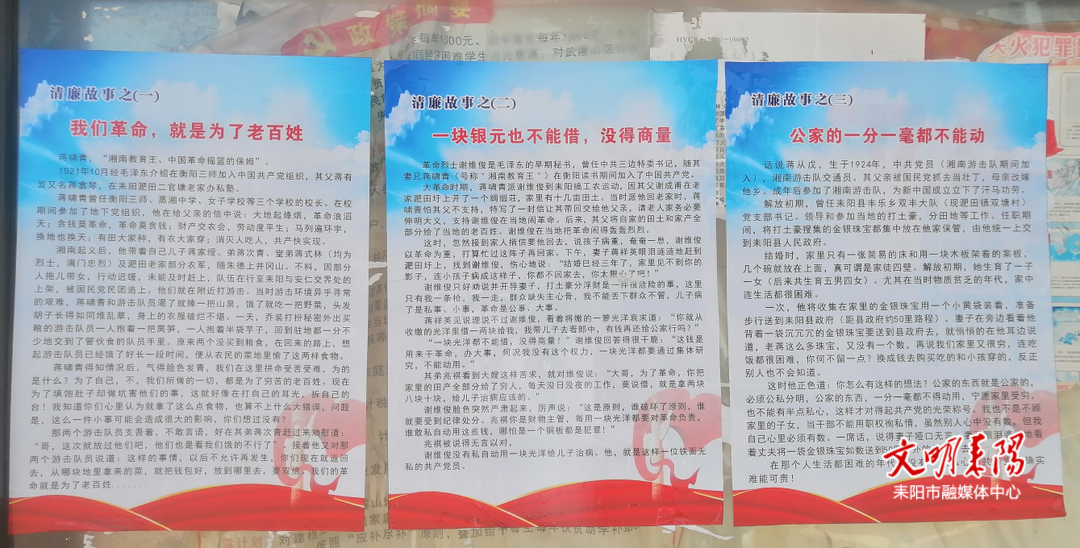 政策摘要
每年1000元、
每年1
困难学生
对武陵山区
HYCR
天火犯罪
清廉故事之(一)
我们革命，就是为了老百姓
蒋啸青，“湘南教育王、中国革命摇篮的保姆”。
1921年10月经毛泽东介绍在衡阳三师加入中国共产党组织，其父蒋有
笠又名蒋盒琴，在耒阳淝田二官塘老家办私塾。
蒋啸青曾任衡阳三师、蒸湘中学、女子学校等三个学校的校长。在校
期间参加了地下党组织，他在给父亲的信中说：大地起烽烟，革命浪滔
天；贪钱莫革命，革命莫贪钱；财产交农会，劳动度平生；马列遍环宇，
换地也换天；有田大家种，有衣大家穿；消灭人吃人，共产快实现。
湘南起义后，他带着自己儿子蒋家绥、弟蒋次青、堂弟蒋式林（均为
烈士，满门忠烈）及淝田老家部分农军，随朱德上井冈山。不料，因部分
人拖儿带女，行动迟缓，未能及时赶上，队伍在行至耒阳与安仁交界处的
上架，被国民党民团追上。他们就在附近打游击。当时游击环境异乎寻常
的艰难，蒋啸青和游击队员渴了就捧一把山泉，饿了就吃一把野菜，头发
胡子长得如同堆乱草，身上的衣服破烂不堪。一天，乔装打扮秘密外出买
粮的游击队员一人抱着一把莴笋，一人抱着半袋芋子，回到驻地都一分不
少地交到了管伙食的队员手里。原来两个没买到粮食，在回来的路上，想
起游击队员已经饿了好长一段时间，便从农民的菜地里偷了这两样食物。
蒋啸青得知情况后，气得脸色发青，我们在这里拼命受苦受难，为的
是什么？为了自己，不，我们所做的一切，都是为了穷苦的老百姓。现在
为了填饱肚子却做坑害他们的事，这就好像在打自己的耳光，拆自己的
台！我知道你们心里认为就拿了这么点食物，也算不上什么大错误，问题
是，这么一件小事可能会造成很大的影响，你们想过没有？
那两个游击队员支吾着，不敢言语，好在其弟蒋次青赶过来劝慰道：
“哥，这次就放过他们吧，他们也是看我们饿的不行了”，接着他又对那
两个游击队员说道：这样的事情，以后不允许再发生，你们现在就返回
去，从哪块地里拿来的菜，就把钱包好，放到哪里去，要双倍。我们的革
命就是为了老百姓.......
清廉故事之(二)
一块银元也不能借，没得商量
革命烈士谢维俊是毛泽东的早期秘书，曾任中共三边特委书记，随其
妻兄蒋啸青（号称“湘南教育王”）在衡阳读书期间加入了中国共产党。
大革命时期，蒋啸青派谢维俊到耒阳搞工农运动，因其父谢成甫在老
家淝田圩上开了一个绸缎庄，家里有十几亩田土。当时派他回老家时，蒋
啸青怕其父不支持，特写了一封信让其带回交给他父亲，请老人家务必要
伸明大义，支持谢维俊在当地闹革命。后来，其父将自家的田土和家产全
部分给了当地的老百姓。谢维俊在当地把革命闹得轰轰烈烈。
这时，忽然接到家人捎信要他回去，说孩子病重，奄奄一息，谢维俊
以革命为重，打算忙过这阵子再回家。下午，妻子蒋祥英眼泪涟涟地赶到
淝田圩上，找到谢维俊，伤心地说：“结婚已经三年了，家里见不到你的
影子，连小孩子病成这样子，你都不回家去，你太狠心了吧！”
谢维俊只好劝说并开导妻子，打土豪分浮财是一件很危险的事，这里
只有我一条枪，我一走，群众缺失主心骨，我不能丢下群众不管，儿子病
了是私事，小事，革命是公事，大事。
蒋祥英见说理说不过谢维俊，看着将缴的一箩光洋哀求道：“你就从
收缴的光洋里借一两块给我，我带儿子去看郎中，有钱再还给公家行吗？”
“一块光洋都不能借，没得商量！”谢维俊回答得很干脆：“这钱是
用来干革命，办大事，何况我没有这个权力，一块光洋都要通过集体研
究，不能动用。”
其弟兆祺看到大嫂这样苦求，就对维俊说：“大哥，为了革命，你把
家里的田产全部分给了穷人，每天没日没夜的工作，莫说借，就是拿两块
八块十块，给儿子治病应该的。”
谢维俊脸色突然严肃起来，厉声说：“这是原则，谁破坏了原则，谁
就要受到纪律处分。兆祺你是财物主管，每用一块光洋都要对革命负责，
谁敢私自动用这些钱，哪怕是一个铜板都是犯罪！”
兆祺被说得无言以对，
谢维俊没有私自动用一块光洋给儿子治病。他，就是这样一位铁面无
私的共产党员。
清廉故事之(三)
公家的一分一毫都不能动
话说蒋从戊，生于1924年，中共党员（湘南游击队期间加
入），湘南游击队交通员。其父亲被国民党抓去当壮丁，母亲改嫁
他乡。成年后参加了湘南游击队，为新中国成立立下了汗马功劳。
解放初期，曾任耒阳县丰乐乡双丰大队（现淝田镇双塘村）
党支部书记。领导和参加当地的打土豪，分田地等工作。任职期
间，将打土豪搜集的金银珠宝都集中放在他家保管，由他统一上交
到耒阳县人民政府。
结婚时，家里只有一张简易的床和用一块木板架着的案板，
几个碗就放在上面，真可谓是家徒四壁。解放初期，她生育了一子
一女（后来共生育五男四女）。尤其在当时物质贫乏的年代，家中
连生活都很困难。
一次，他将收集在家里的金银珠宝用一个小黄袋装着，准备
步行送到耒阳县政府（距县政府约50里路程）。妻子在旁边看着他
背着一袋沉沉的金银珠宝要送到县政府去，就悄悄的在他耳边说
道，老蒋这么多珠宝，又没有一个数，再说我们家里又很穷，连吃
饭都很困难，你何不留一点？换成钱去购买吃的和小孩穿的，反正
别人也不会知道。
这时他正色道：你怎么有这样的想法？公家的东西就是公家的，
必须公私分明，公家的东西，一分一毫都不得动用，宁愿家里受穷，
也不能有半点私心，这样才对得起共产党的光荣称号。我也不是不顾
家里的子女，当干部不能用职权徇私情，虽然别人心中没有数，但我
自己心里必须有数。一席话，说得妻子哑口无言
着丈夫将一袋金银珠宝如数送到50
在那个人生活都困难的年代
难能可贵！
文明耒阳
耒阳市融媒体中心
“应补尽补”原则，